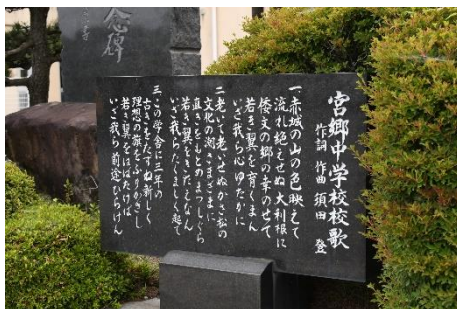 念碑
宮郷中学校校歌
作詞 作曲 須田 登
一、赤城の山の色映えて
流れ絶えせぬ大利根に
倭文の郷の幸のせて
若き翼を育くまん
いざ我ら心ゆたかに
二、老いて老いせぬかざ松の
文化の渕さまざまに
直きをもとめまっしぐら
若き翼をきたえなん
いざ我らたくましく起て
三、この学舎に三年の
古きをたずね新しく
理想の旗をふりかざし
若き翼をはばたけば
いざ我ら前途ひらけん